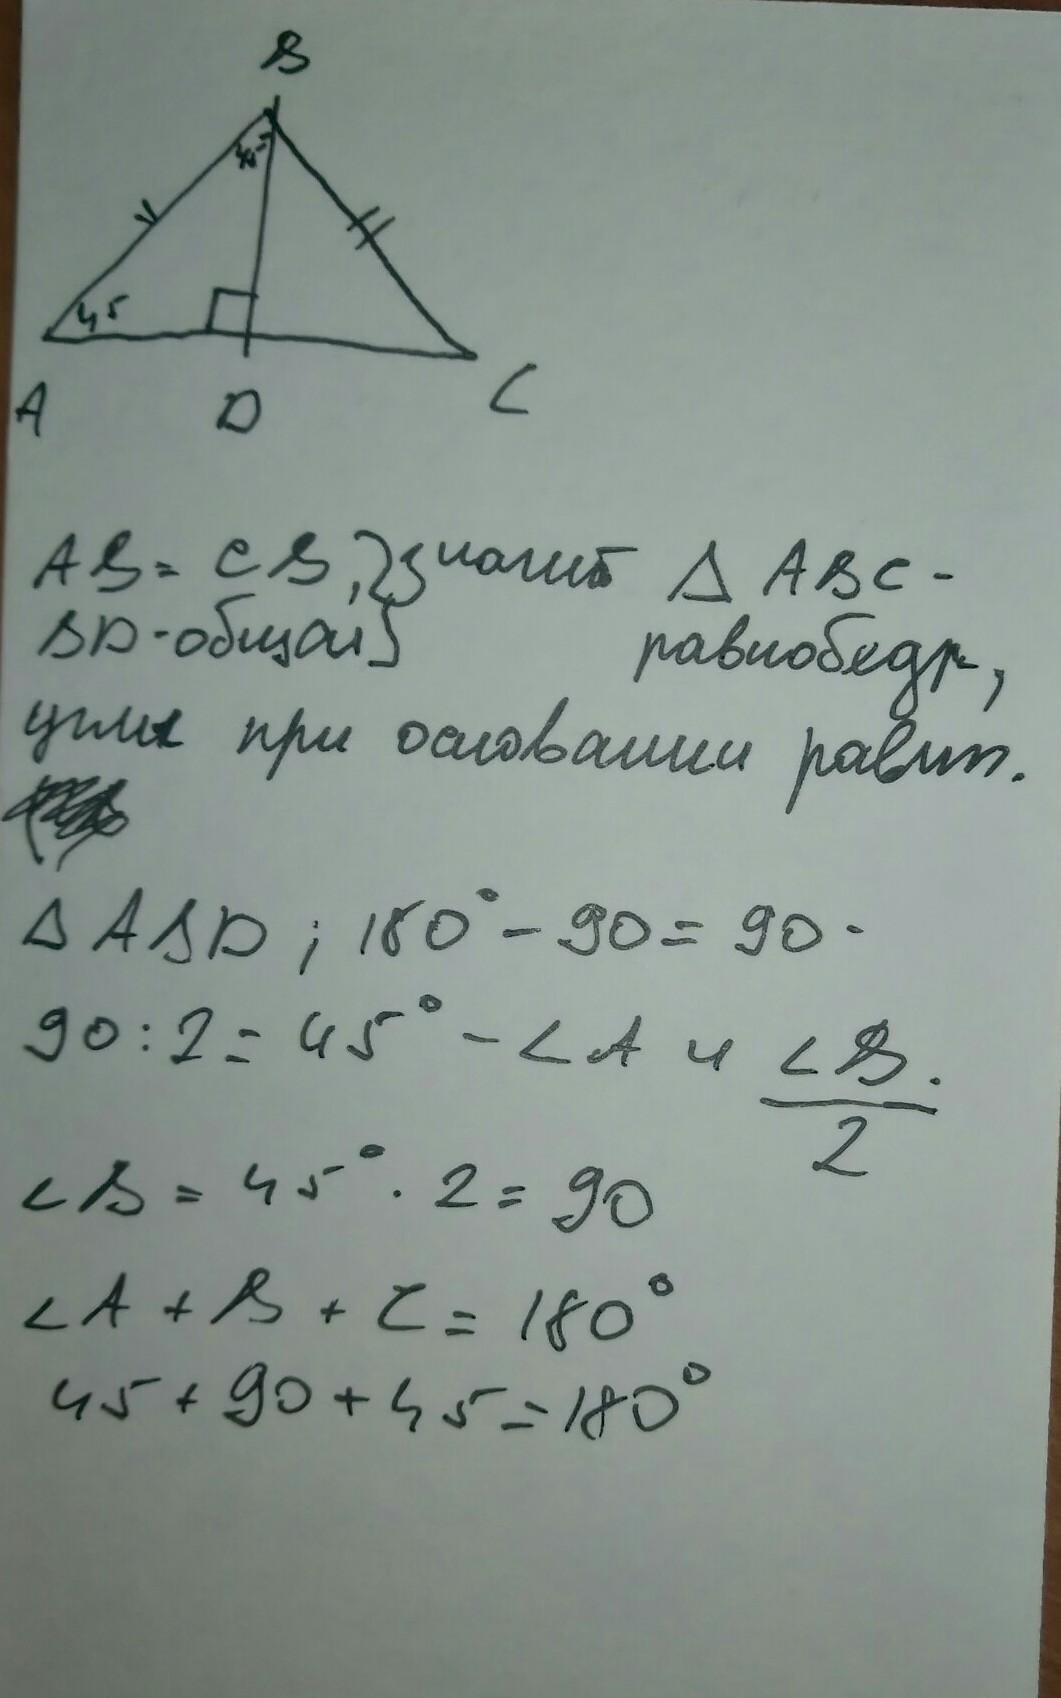 B
45
45
A D C
AB = CB, } значит △ ABC -
BD - общая } равнобедр,
углы при основании равны.
△ ABD ; 180° - 90 = 90 -
90 : 2 = 45° - ∠A и ∠B.
2
∠B = 45° · 2 = 90
∠A + B + C = 180°
45 + 90 + 45 = 180°